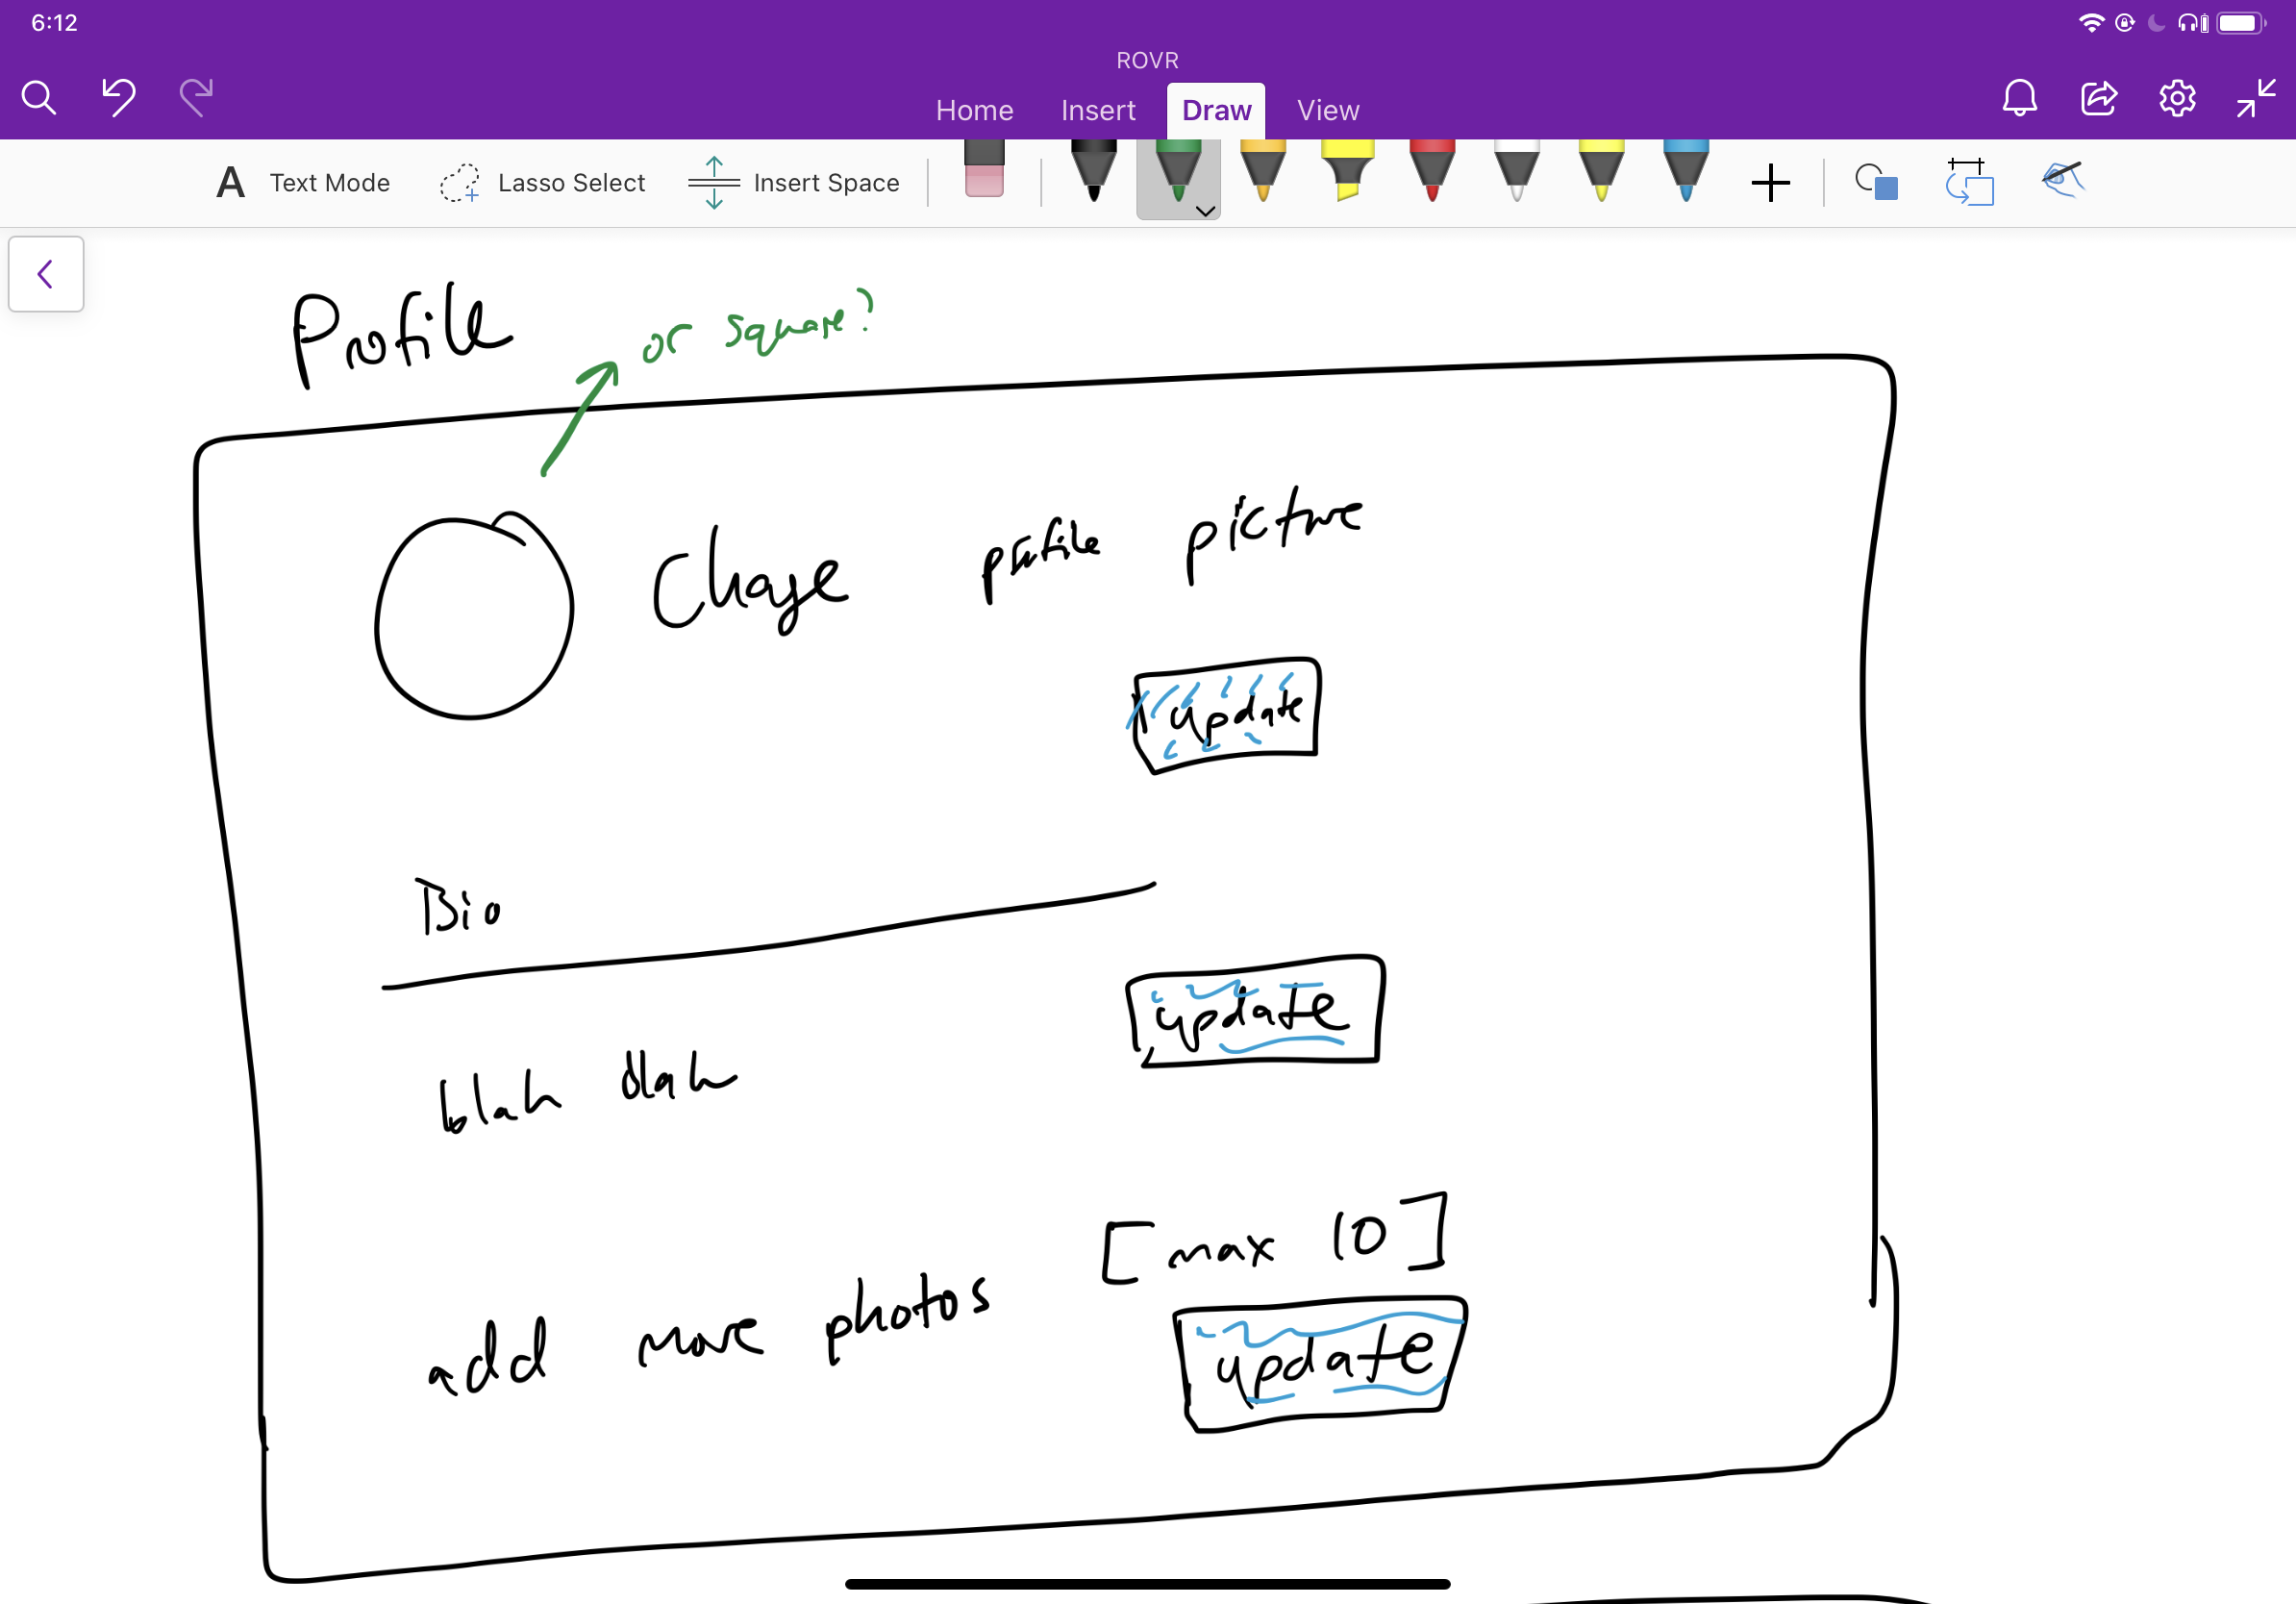 6:12
ROVR
Home Insert Draw View
A Text Mode Lasso Select Insert Space
Profile
or square?
Change profile picture
update
Bio
update
blah blah
[max 10]
add more photos
update